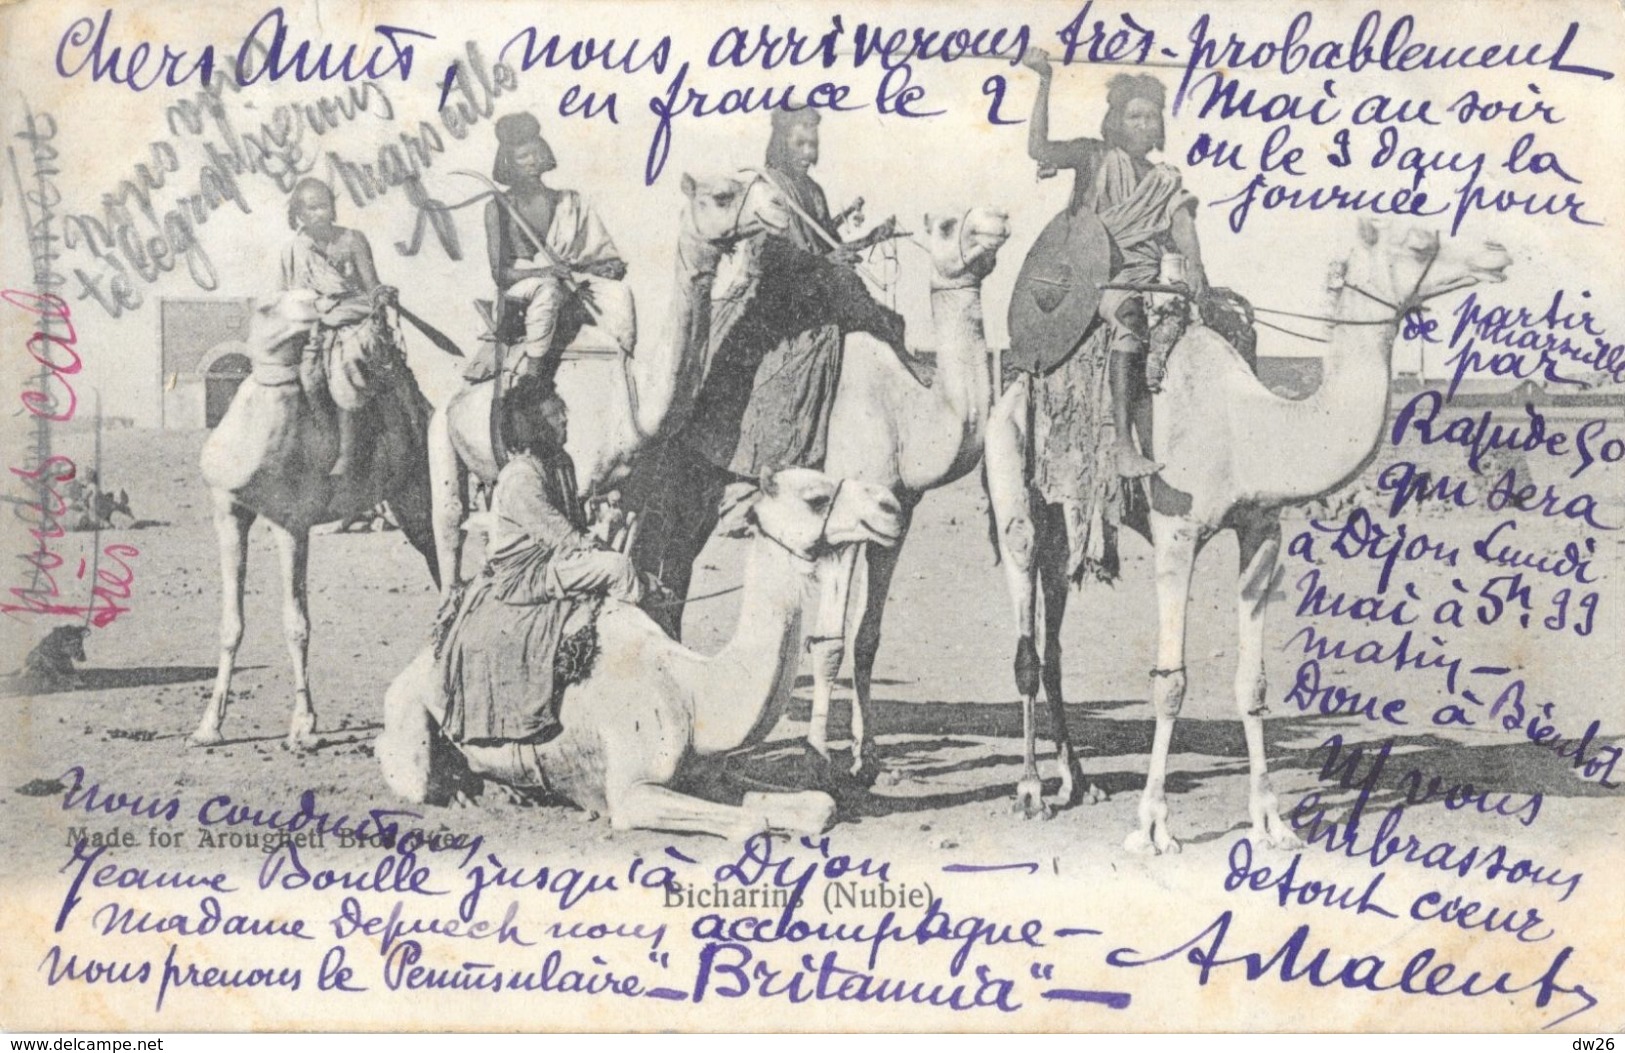 Chers Amis, nous arriverons très-probablement
en france le 2 Mai au soir
ou le 3 dans la
journée pour
partir
de Marseille
par
Rapide 50
qui sera
à Dijon Lundi
4
Mai à 5h.33
matin –
Donc à Bientôt
Nous
télégraphierons
de
Marseille
A
N/ vous
Embrassons
de tout cœur
AMalent
Nous conduisons
Made for Arougheti Bros Suez
Jeanne Boulle jusqu'à Dijon —
Bicharins (Nubie)
Madame Depuech nous accompagne –
Nous prenons le Peninsulaire "Britannia" —
www.delcampe.net
dw26